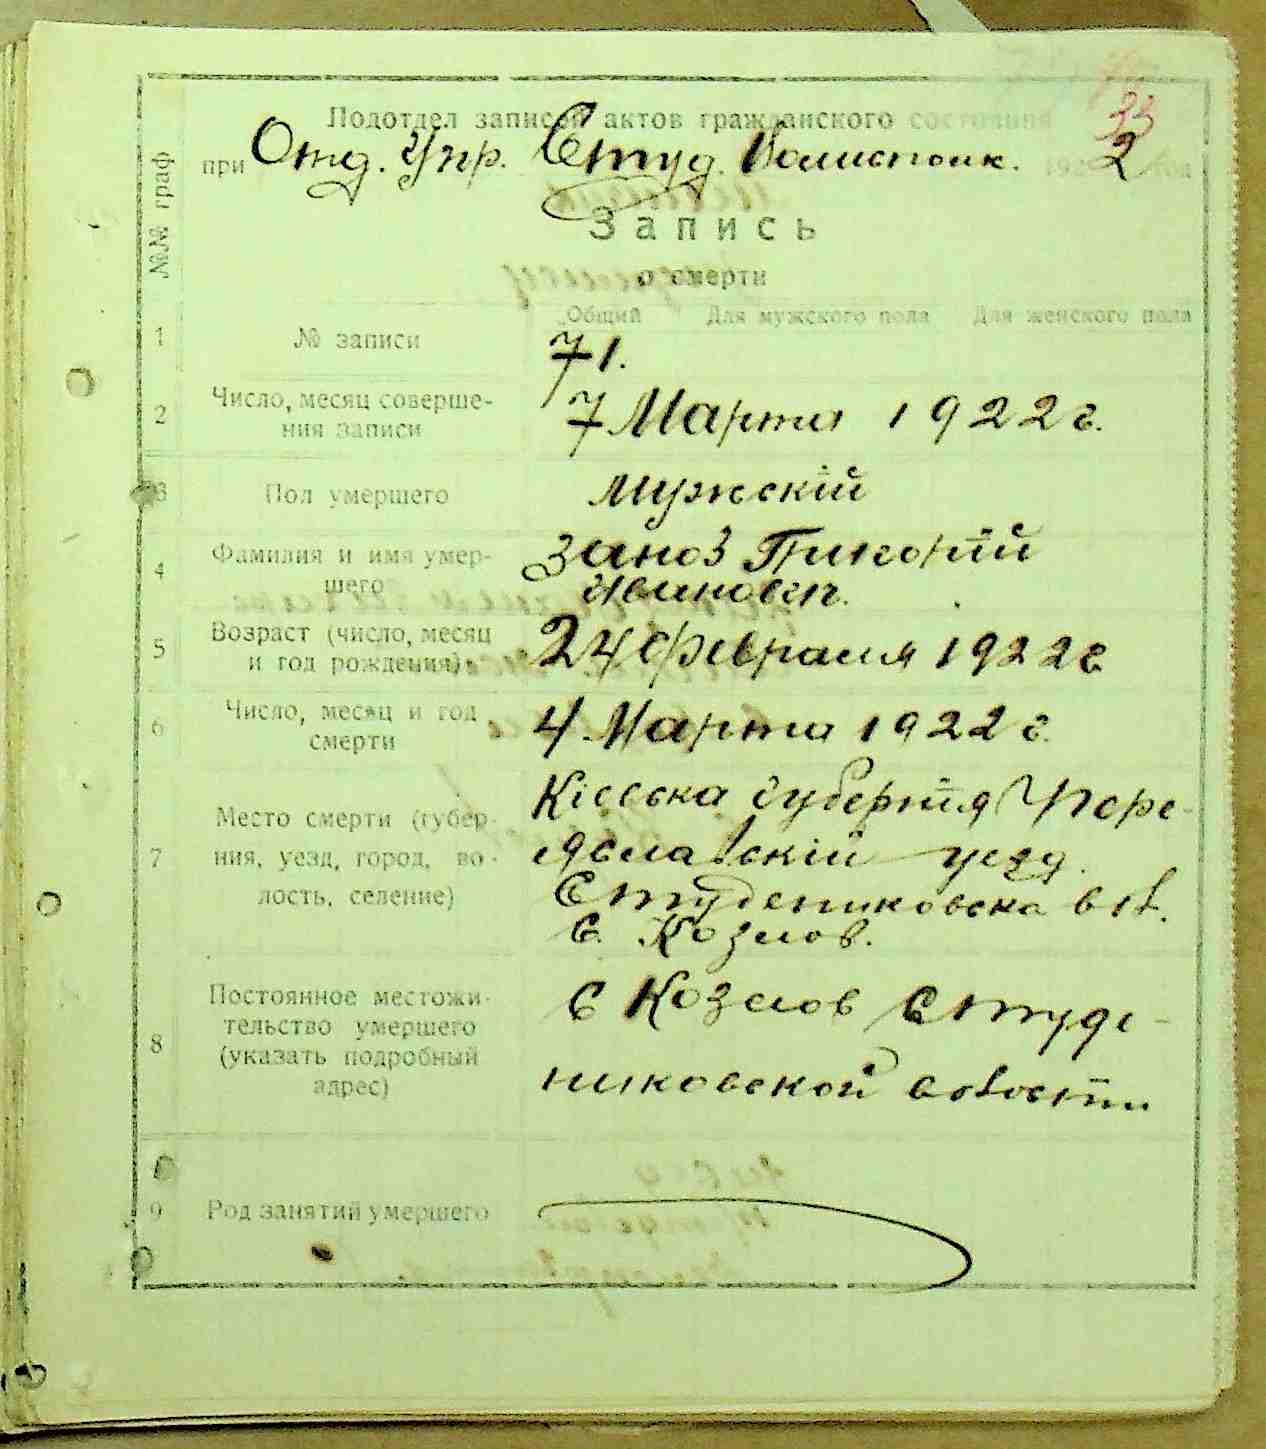 33
Подотдел записей актов гражданского состояния
при Отд. Упр. Студ. Волисполк. 1922 год
№№ граф
Запись
о смерти
Общий Для мужского пола Для женского пола
1 № записи 71.
2 Число, месяц соверше-
ния записи 7 Марта 1922 г.
3 Пол умершего Мужскій
4 Фамилия и имя умер-
шего Заноз Григорій
Иванович.
5 Возраст (число, месяц
и год рождения) 24 февраля 1922 г
6 Число, месяц и год
смерти 4 Марта 1922 г.
7 Место смерти (губер-
ния, уезд, город, во-
лость, селение)
Кіевска губернія Пере-
яславскій уезд.
Студениковска вол.
С. Козлов.
8 Постоянное местожи-
тельство умершего
(указать подробный
адрес)
С Козлов Студе-
никовской волости
9 Род занятий умершего